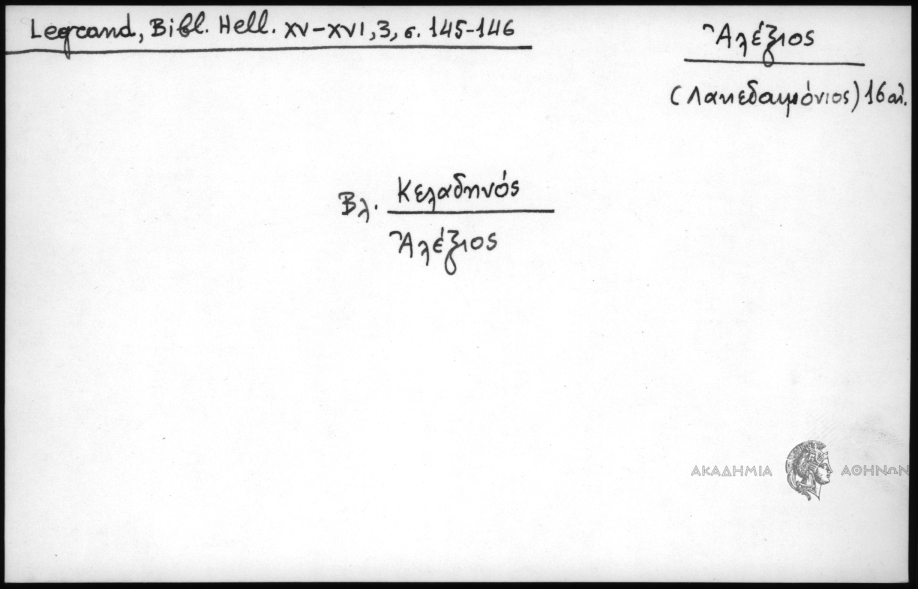 Legrand, Bibl. Hell. XV-XVI, 3, σ. 145-146
Ἀλέξιος
(Λακεδαιμόνιος) 16 αἰ.
Βλ. Κελαδηνός
Ἀλέξιος
ΑΚΑΔΗΜΙΑ ΑΘΗΝΩΝ